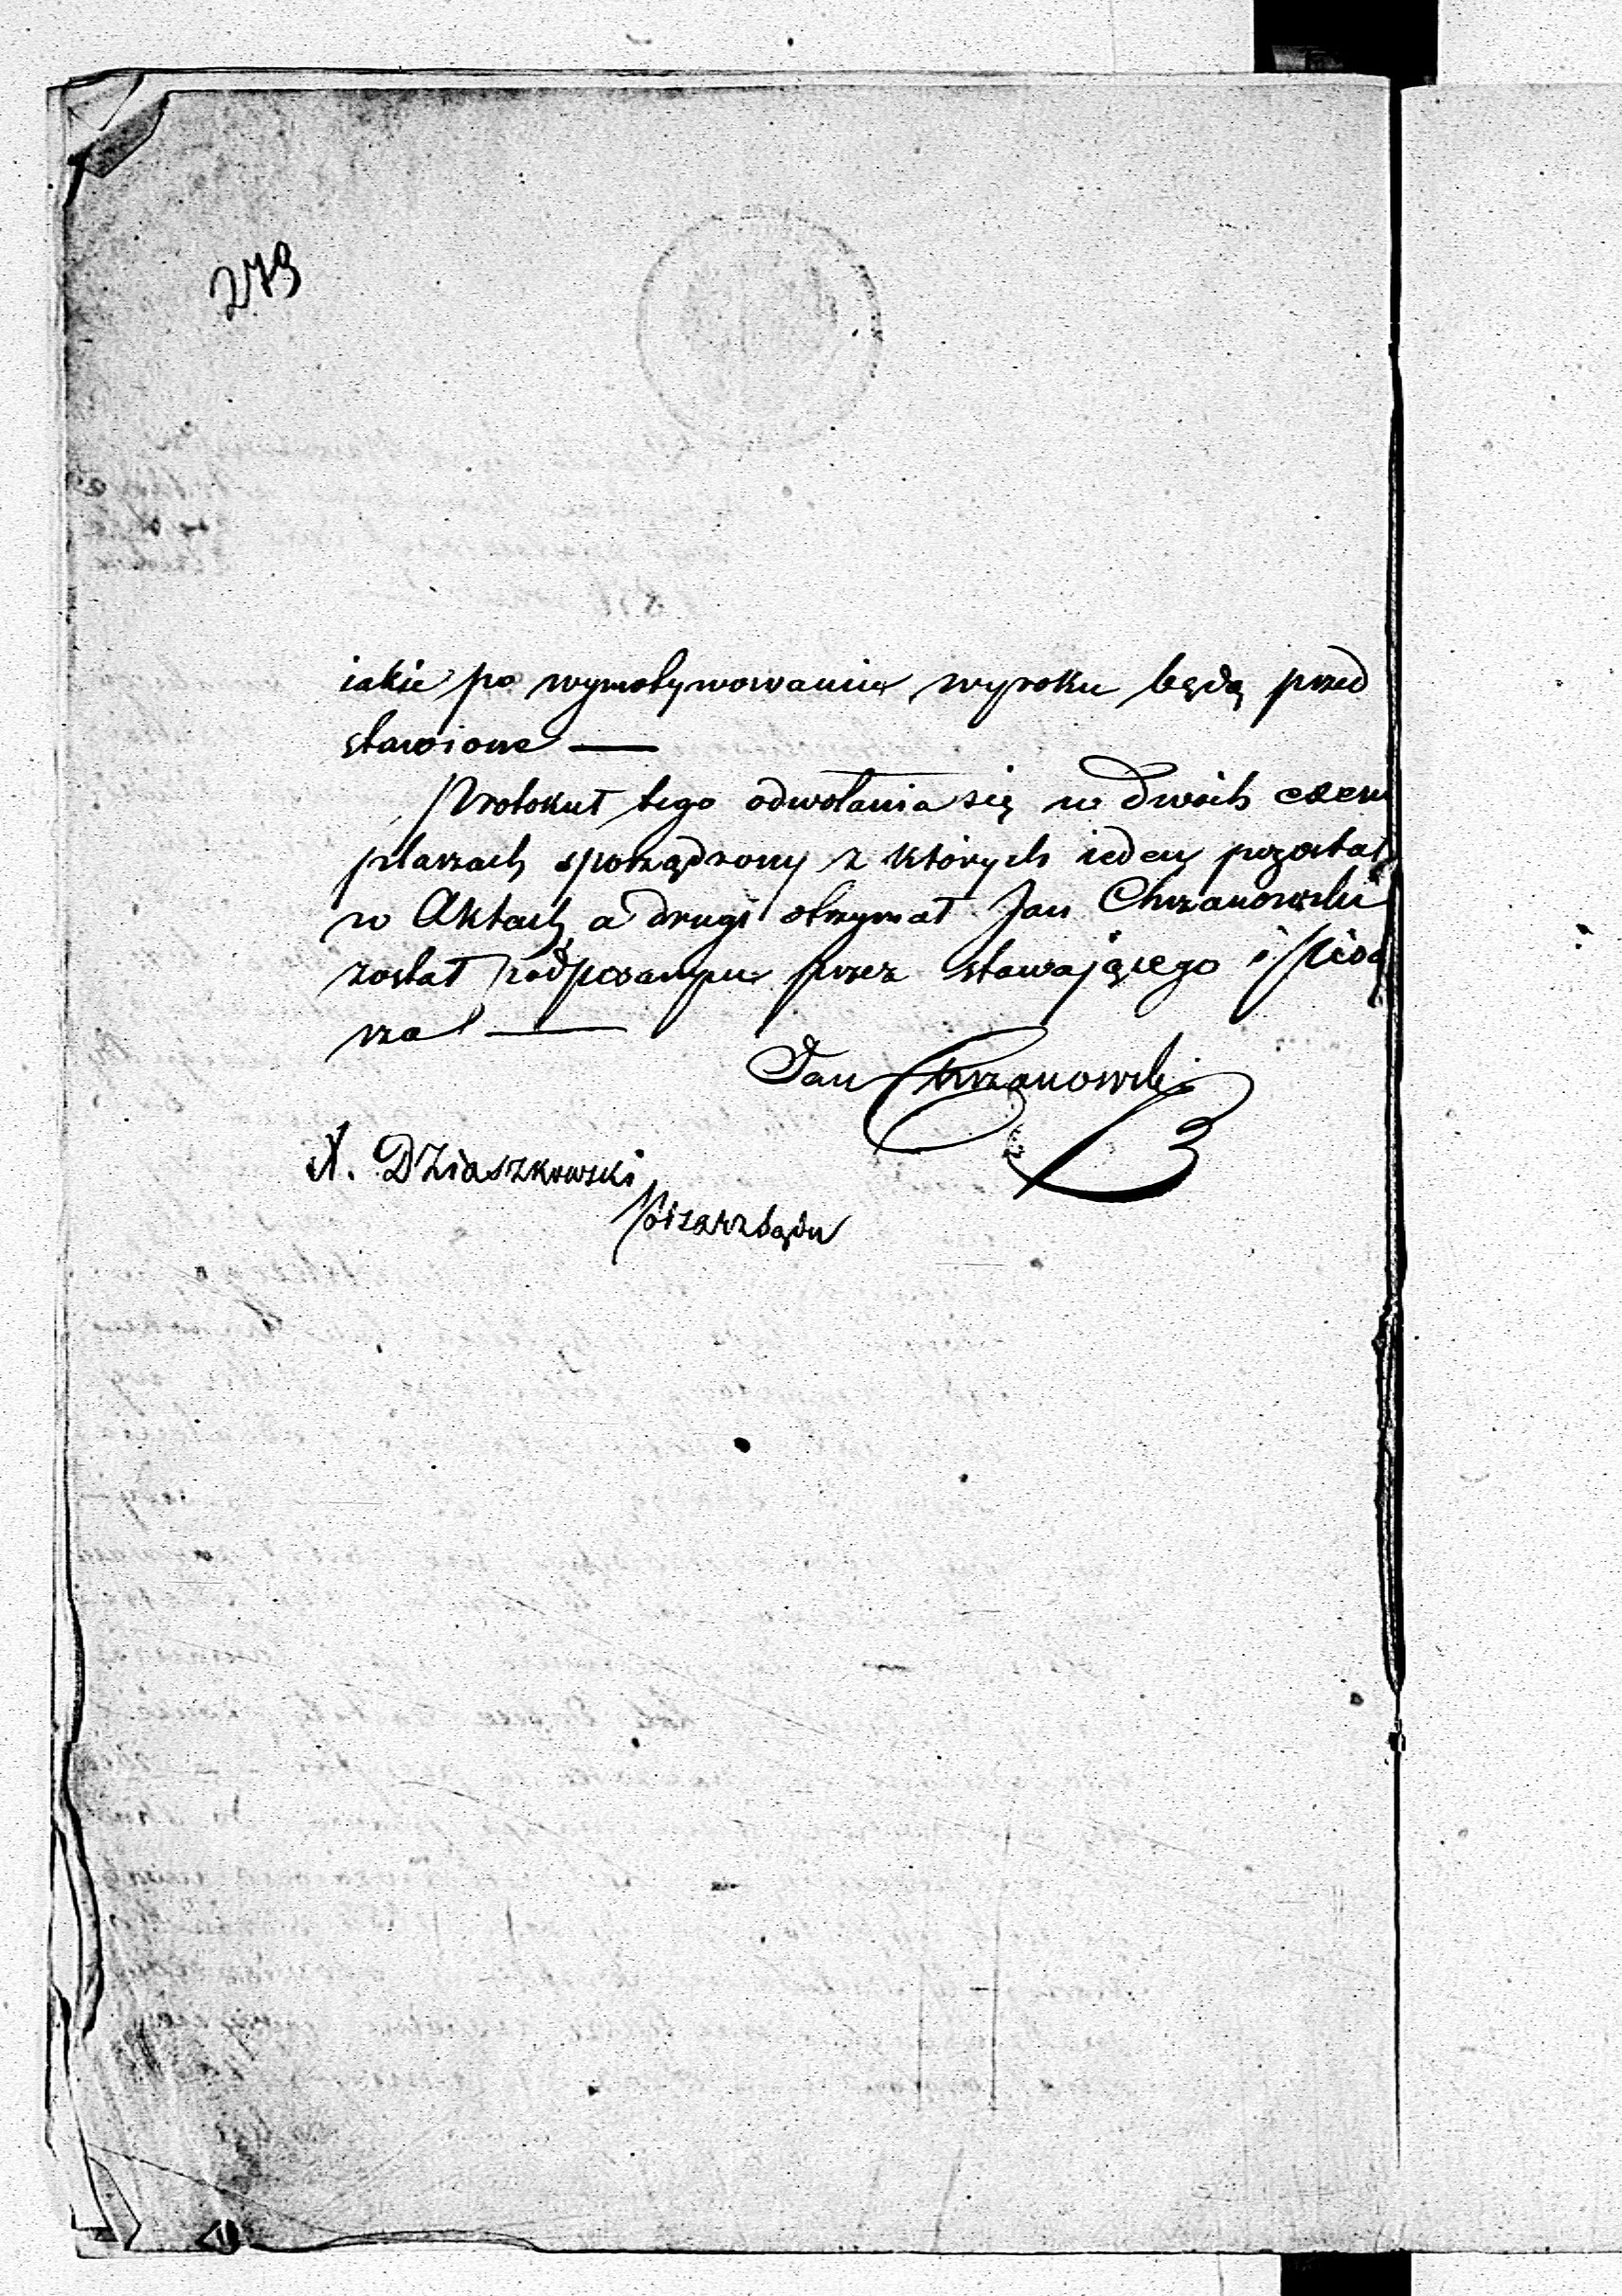 279
iakie po wymotywowaniu wyroku będą przed
stawione —
Protokuł tego odwołania się w dwóch exem
plarzach sporządzony z których ieden pozostał
w Aktach a drugi otrzymał Jan Chrzanowski
został podpisanym przez stawającego i Pisa
rza —
Jan Chrzanowski
A. Dziaszkowski
Pisarz Sądu